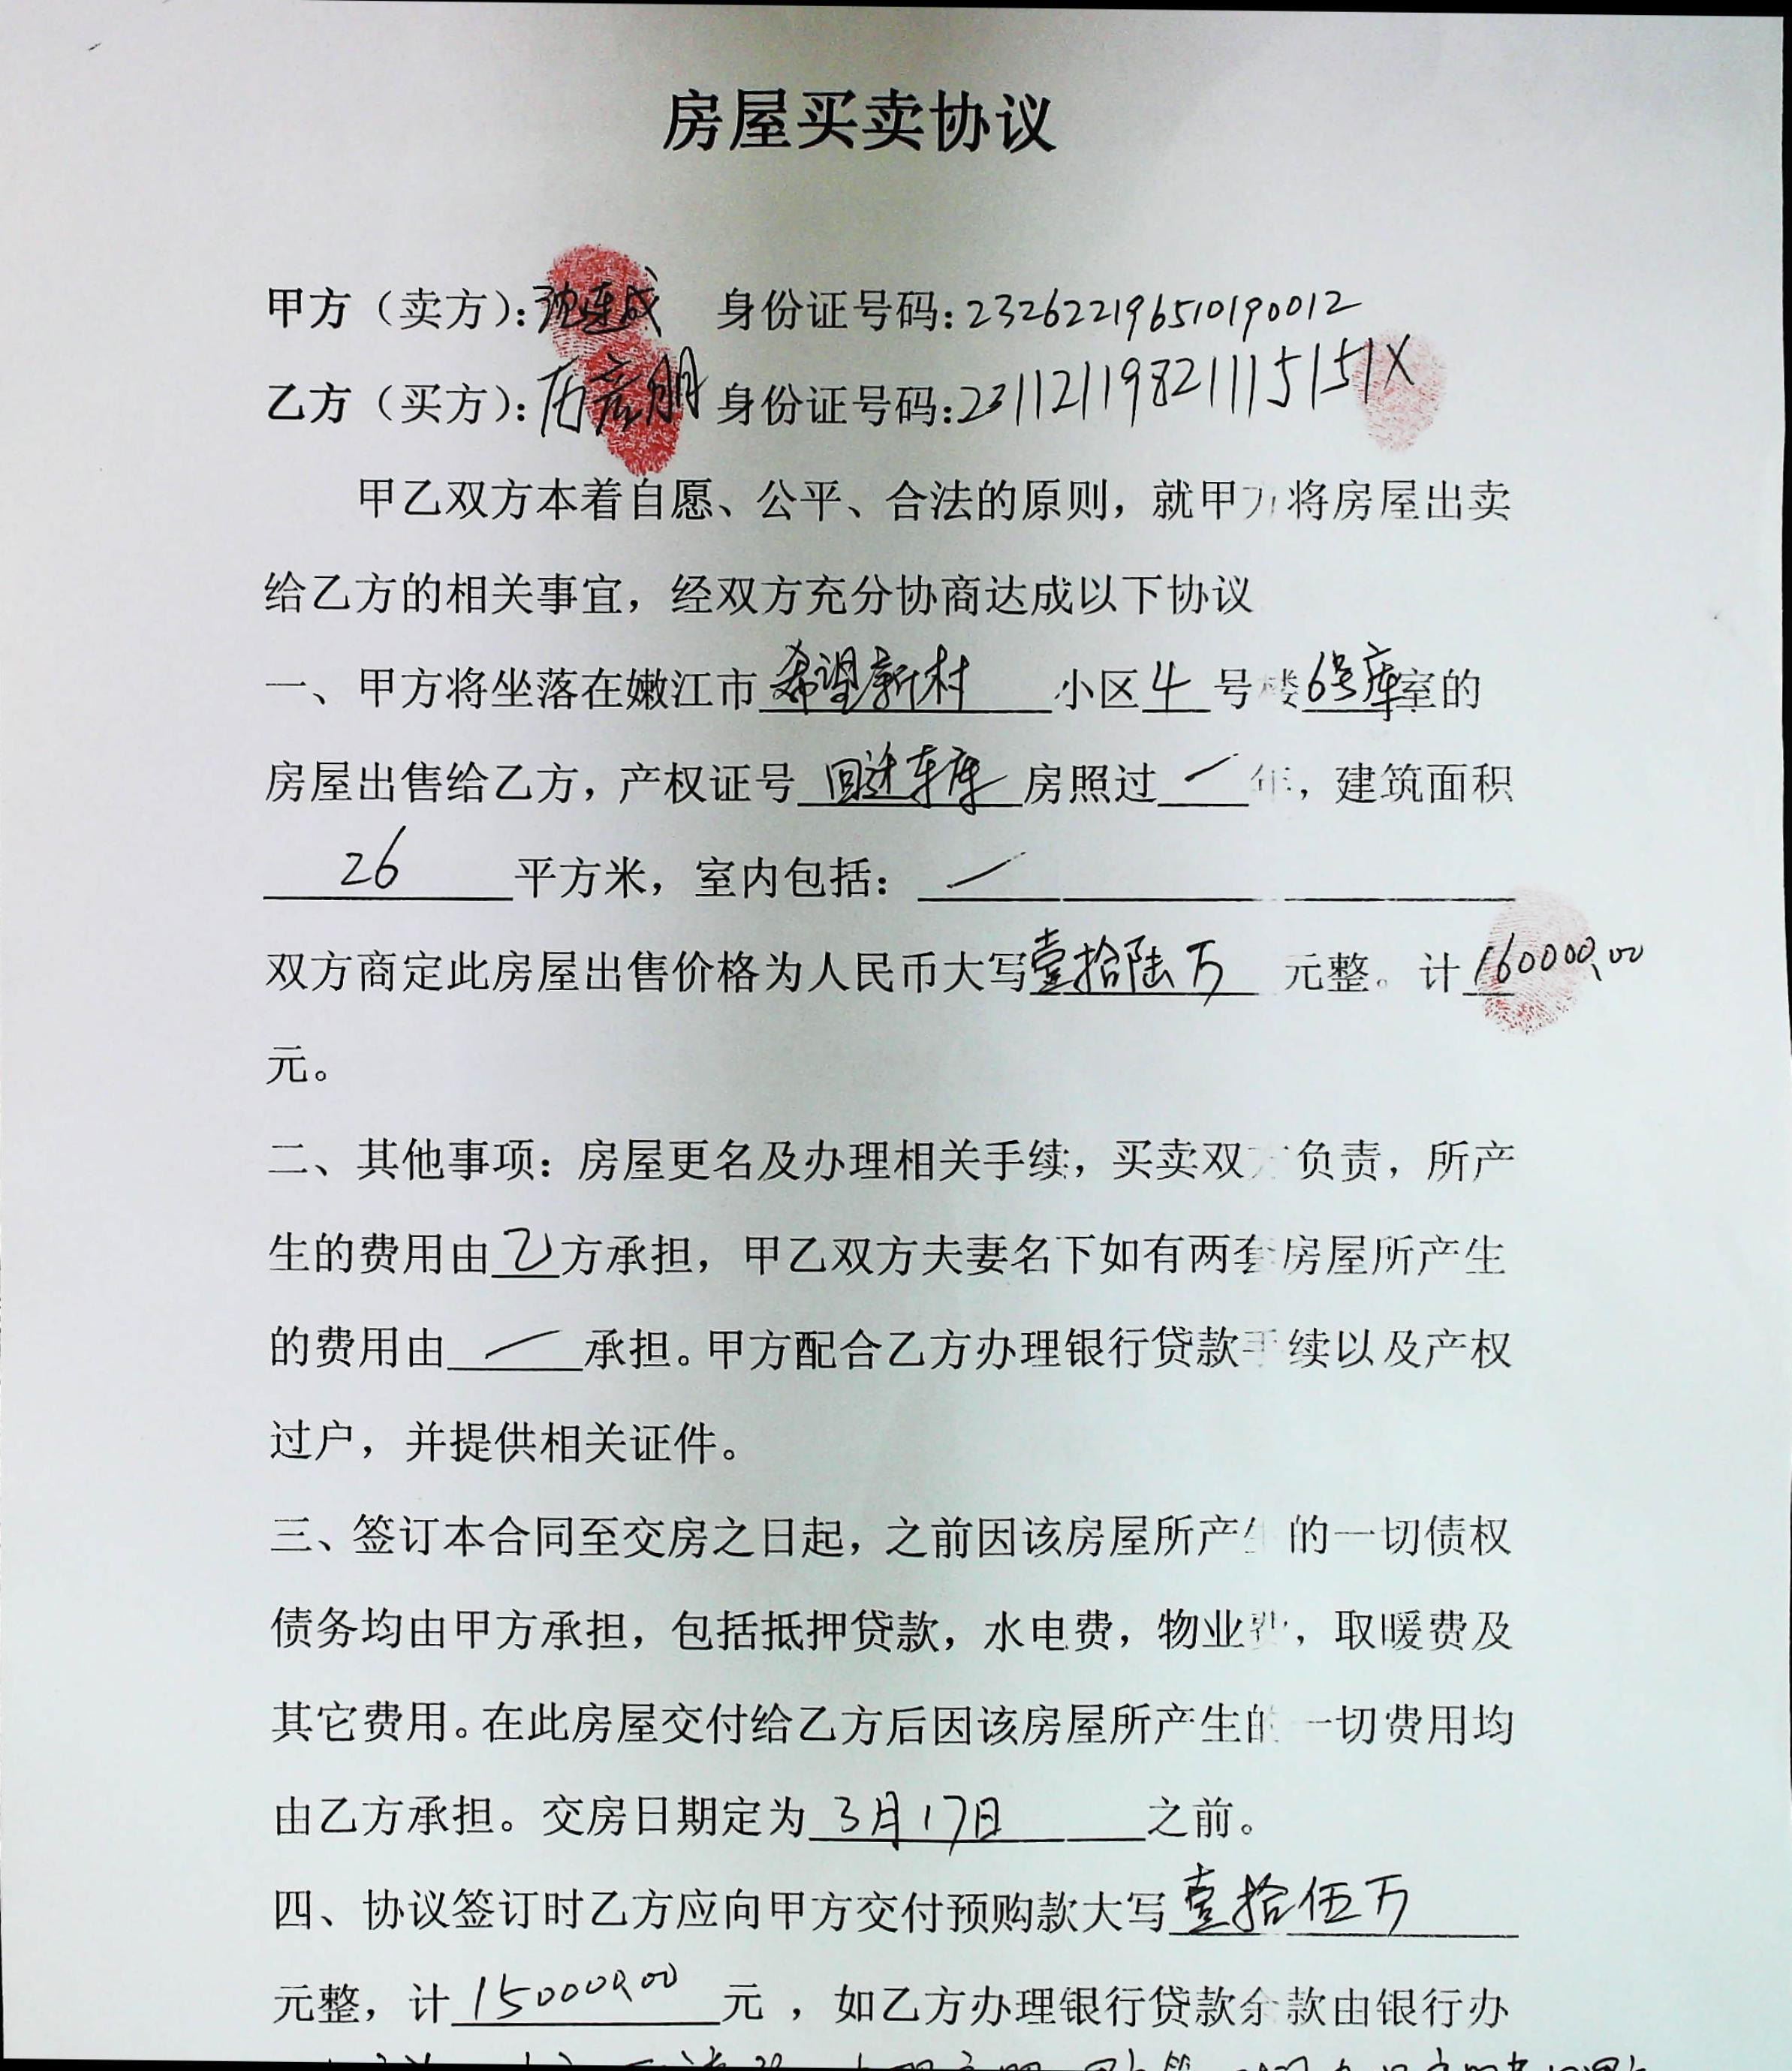 房屋买卖协议
甲方（卖方）：沈连成 身份证号码：232622196510190012
乙方（买方）：历彦朋 身份证号码：23112119821115151X
甲乙双方本着自愿、公平、合法的原则，就甲方将房屋出卖
给乙方的相关事宜，经双方充分协商达成以下协议
一、甲方将坐落在嫩江市希望新村小区4号楼6号库室的
房屋出售给乙方，产权证号回迁车库房照过年，建筑面积
26平方米，室内包括：
双方商定此房屋出售价格为人民币大写壹拾陆万元整。计160000.00
元。
二、其他事项：房屋更名及办理相关手续，买卖双方负责，所产
生的费用由乙方承担，甲乙双方夫妻名下如有两套房屋所产生
的费用由承担。甲方配合乙方办理银行贷款手续以及产权
过户，并提供相关证件。
三、签订本合同至交房之日起，之前因该房屋所产生的一切债权
债务均由甲方承担，包括抵押贷款，水电费，物业费，取暖费及
其它费用。在此房屋交付给乙方后因该房屋所产生的一切费用均
由乙方承担。交房日期定为3月17日之前。
四、协议签订时乙方应向甲方交付预购款大写壹拾伍万
元整，计150000.00元，如乙方办理银行贷款余款由银行办